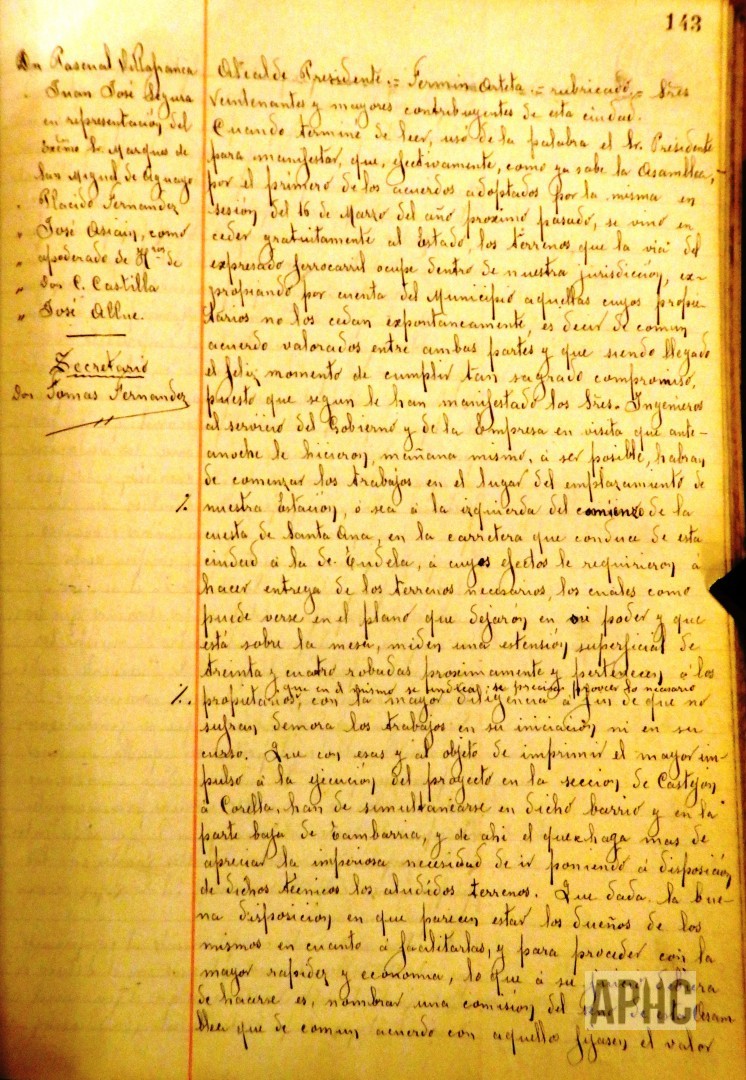 143
Dn Pascual Villafranca
" Juan José Segura
en representación del
Excmo Sr. Marques de
San Miguel de Aguayo
" Placido Fernandez
" José Asiain, como
" apoderado de Hros de
" Don C. Castilla
" José Allue.
Secretario
Don Tomas Fernandez
Alcalde Presidente.= Fermin Arteta.= rubricado.= Sres
Veintenantes y mayores contribuyentes de esta ciudad.
Cuando terminé de leer, usó de la palabra el Sr. Presidente
para manifestar, que, efectivamente, como ya sabe la Asamblea,
por el primero de los acuerdos adoptados por la misma en
sesión del 16 de Marzo del año proximo pasado, se vino en
ceder gratuitamente al Estado, los terrenos que la via del
expresado ferrocarril ocupe dentro de nuestra jurisdicción, ex-
propiando por cuenta del Municipio aquellas cuyos propie-
tarios no los cedan expontaneamente, es decir de comun
acuerdo valorados entre ambas partes y que siendo llegado
el feliz momento de cumplir tan sagrado compromiso,
puesto que segun le han manifestado los Sres. Ingenieros
al servicio del Gobierno y de la Empresa en visita que ante-
anoche le hicieron, mañana mismo, á ser posible, habran
de comenzar los trabajos en el lugar del emplazamiento de
nuestra Estación, ó sea á la izquierda del comienzo de la
cuesta de Santa Ana, en la carretera que conduce de esta
ciudad á la de Tudela, á cuyos efectos le requirieron á
hacer entrega de los terrenos necesarios, los cuales como
puede verse en el plano que dejaron en mi poder y que
está sobre la mesa, miden una estensión superficial de
treinta y cuatro robadas proximamente y pertenecen á los
que en el mismo se indican; se precisa proveer lo necesario
propietarios, con la mayor diligencia á fin de que no
sufran demora los trabajos en su iniciación ni en su
curso. Que con esas y al objeto de imprimir el mayor im-
pulso á la ejecución del proyecto en la sección de Castejon
á Corella, han de simultanearse en dicho barrio y en la
parte baja de Tambarria, y de ahi el que haga mas de
apreciar la imperiosa necesidad de ir poniendo á disposición
de dichos tecnicos los aludidos terrenos. Que dada la bue-
na disposición en que parecen estar los dueños de los
mismos en cuanto á facilitarlas, y para proceder con la
mayor rapidez y economia, lo que á su
de hacerse es, nombrar una comisión del de esta Asam-
blea que de comun acuerdo con aquellos fijasen el valor
APHC